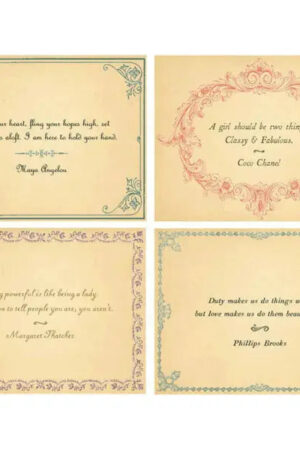 ur heart, fling your hopes high, set
s aloft. I am here to hold your hand.
Maya Angelou
A girl should be two thin
Classy & Fabulous.
Coco Chanel
powerful is like being a lady.
to tell people you are, you aren't.
Margaret Thatcher
Duty makes us do things
but love makes us do them beau
Phillips Brooks